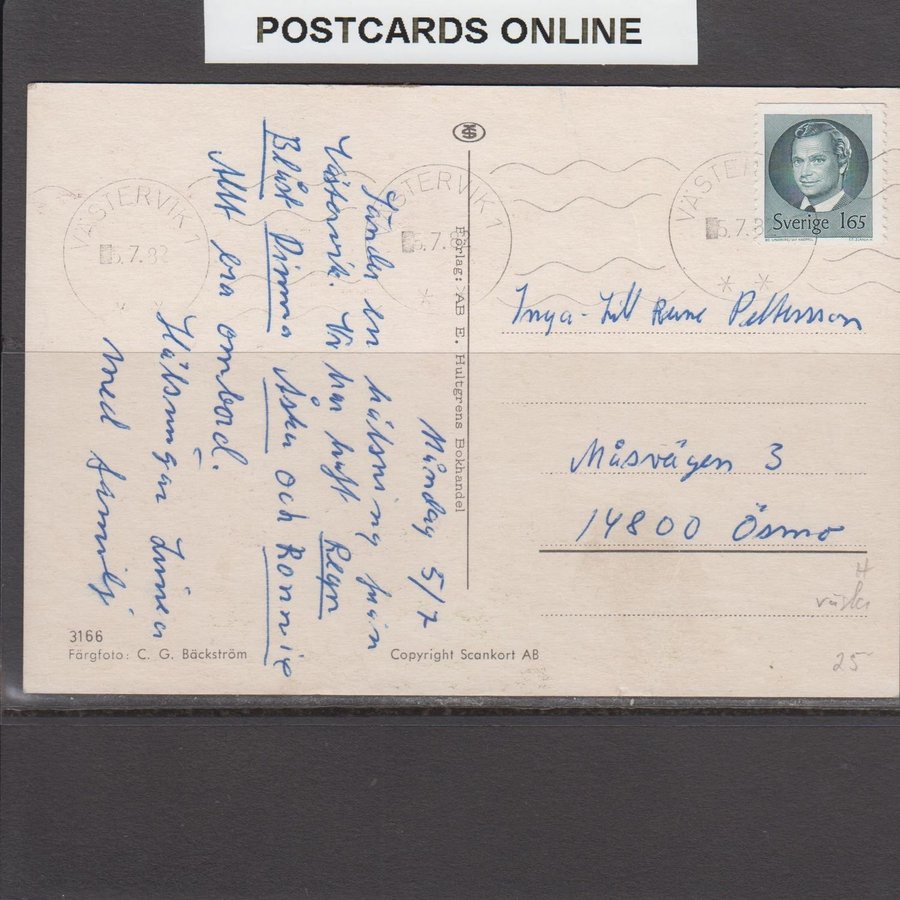 POSTCARDS ONLINE
Måndag 5/7
Sänder en hälsning från
Västervik. Vi har haft Regn
Blåst Dimma Åska och Ronnie
Allt bra ombord.
Hälsningar Linnea
med familj
VÄSTERVIK
5.7.82
VÄSTERVIK 1
5.7.8
VÄSTER
5.7.8
Sverige 165
Inga-Lill Rune Pettersson
Måsvägen 3
14800 Ösmo
Förlag: AB E. Hultgrens Bokhandel
3166
Färgfoto: C. G. Bäckström
Copyright Scankort AB
25-